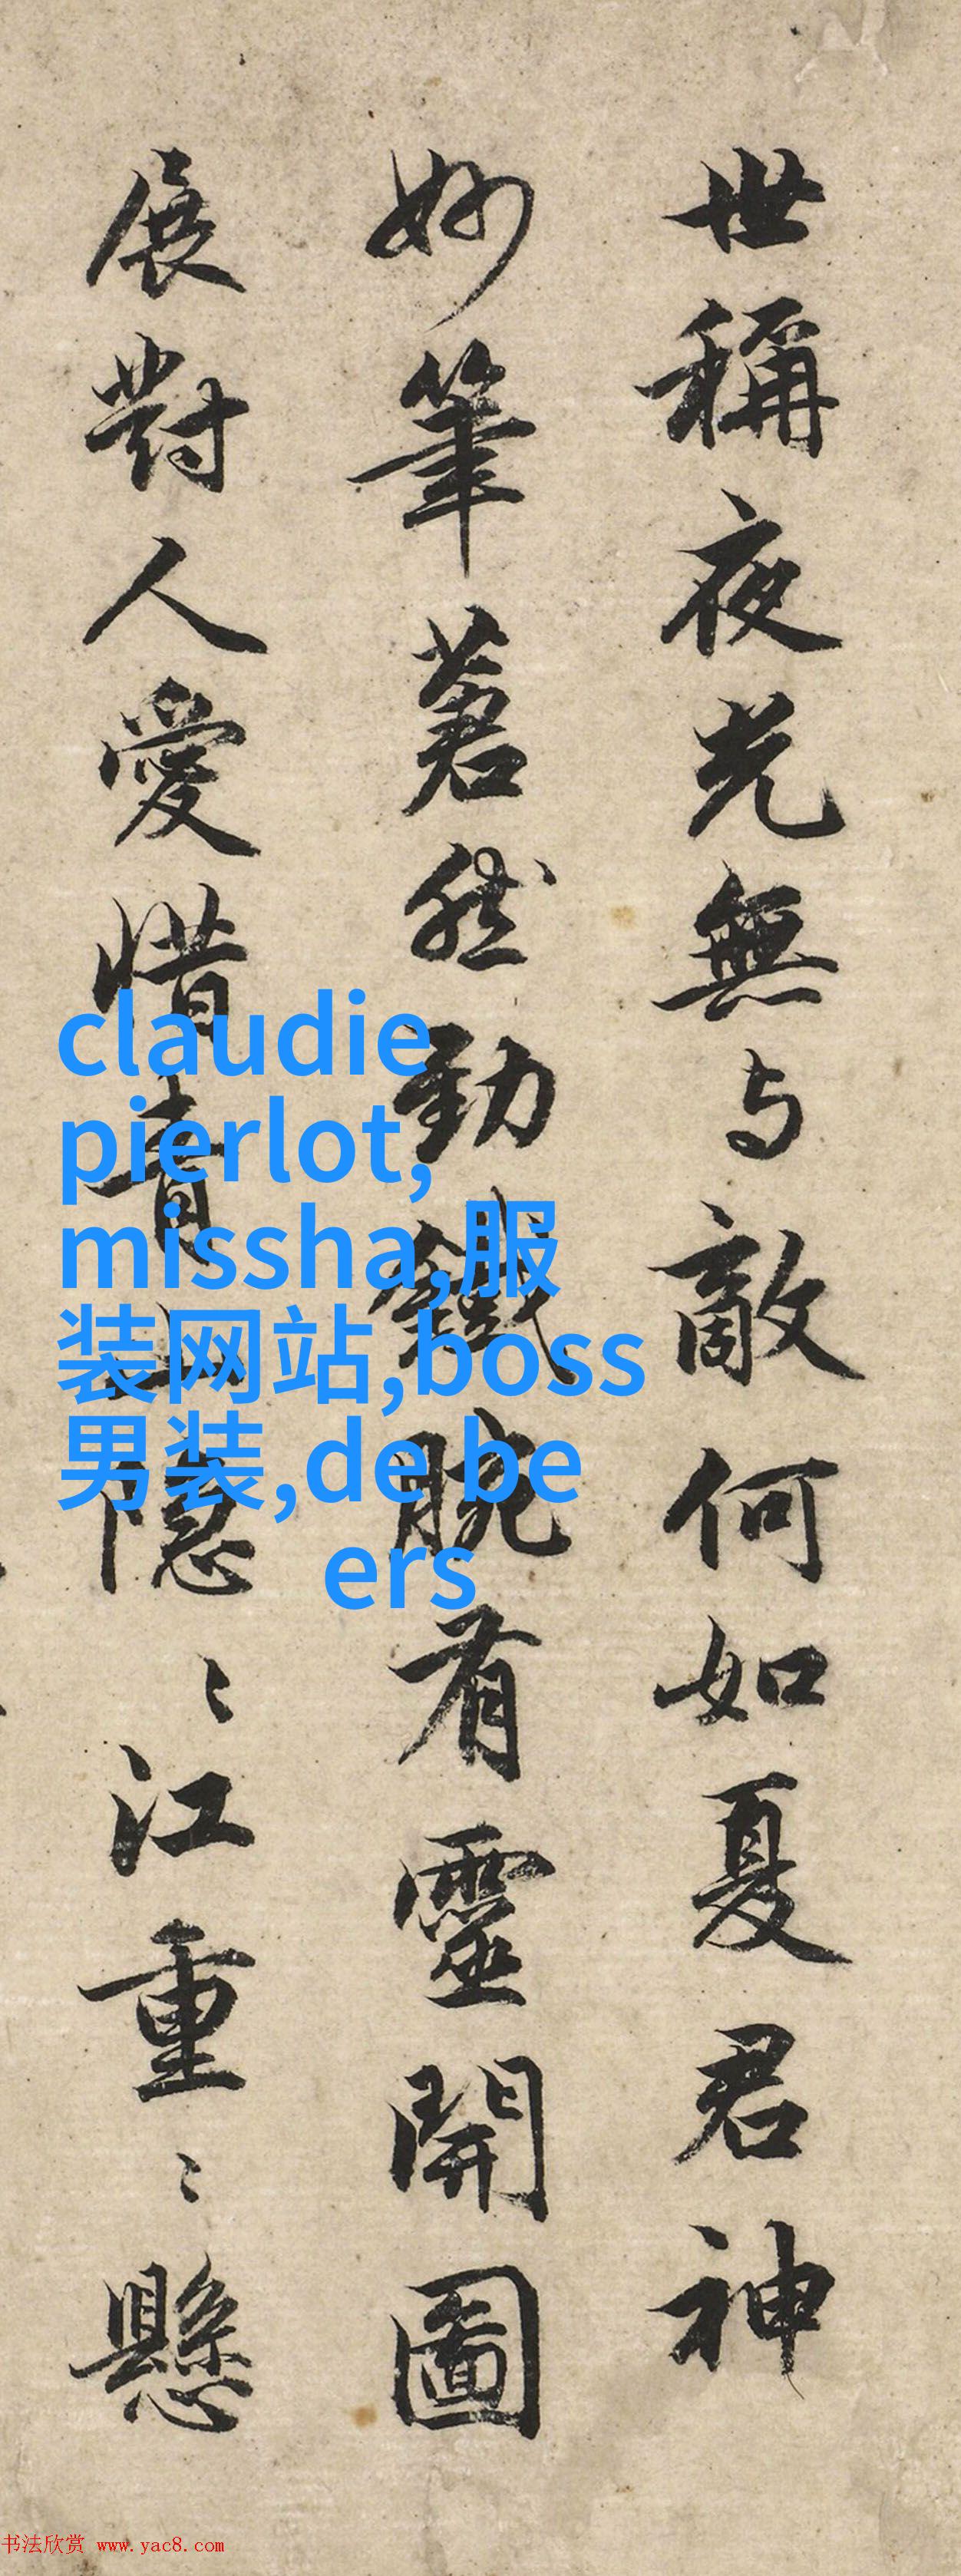 世稱夜光無与敵何如夏君神
妙筆蒼然勁鐵腕有靈開圖
展對人愛惜青山隱〻江重〻懸
claudie
pierlot,
missha,服
装网站,boss
男装,de be
ers
书法欣赏 www.yac8.com